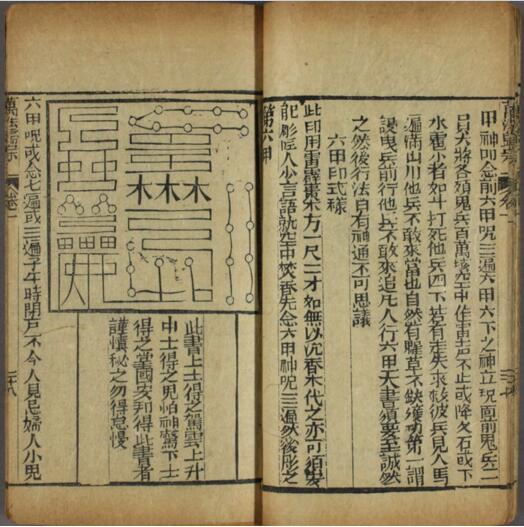 萬法歸宗 卷二
甲神咒念前六甲咒三遍六甲六下之神立現面前鬼兵二
員大將各領鬼兵百萬 空中作雷 不止或降火石或下
水雹少者如斗打死他兵四下若有走失求救彼兵見人馬
遍滿山川他兵不敢來當也自然有糧草不缺獲功第一謂
曳兵前行他兵不敢來追凡人行六甲天書須要至誠然
之然後行法自有神通不可思議
六甲印式樣
此印用雷霹棗木方一尺二寸如無以沉香木代之亦可須要
能彫匠人少言語就空中焚香先念六甲神咒三遍然後彫之
第六甲
木木木
此書上士得之駕雲上升
中士得之鬼怕神驚下士
得之 國安邦得此書者
謹慎秘之勿得怠慢
六甲咒或念七遍或三遍子午時閉戶不令人見忌婦人小兒
萬法歸宗 卷二 二十八